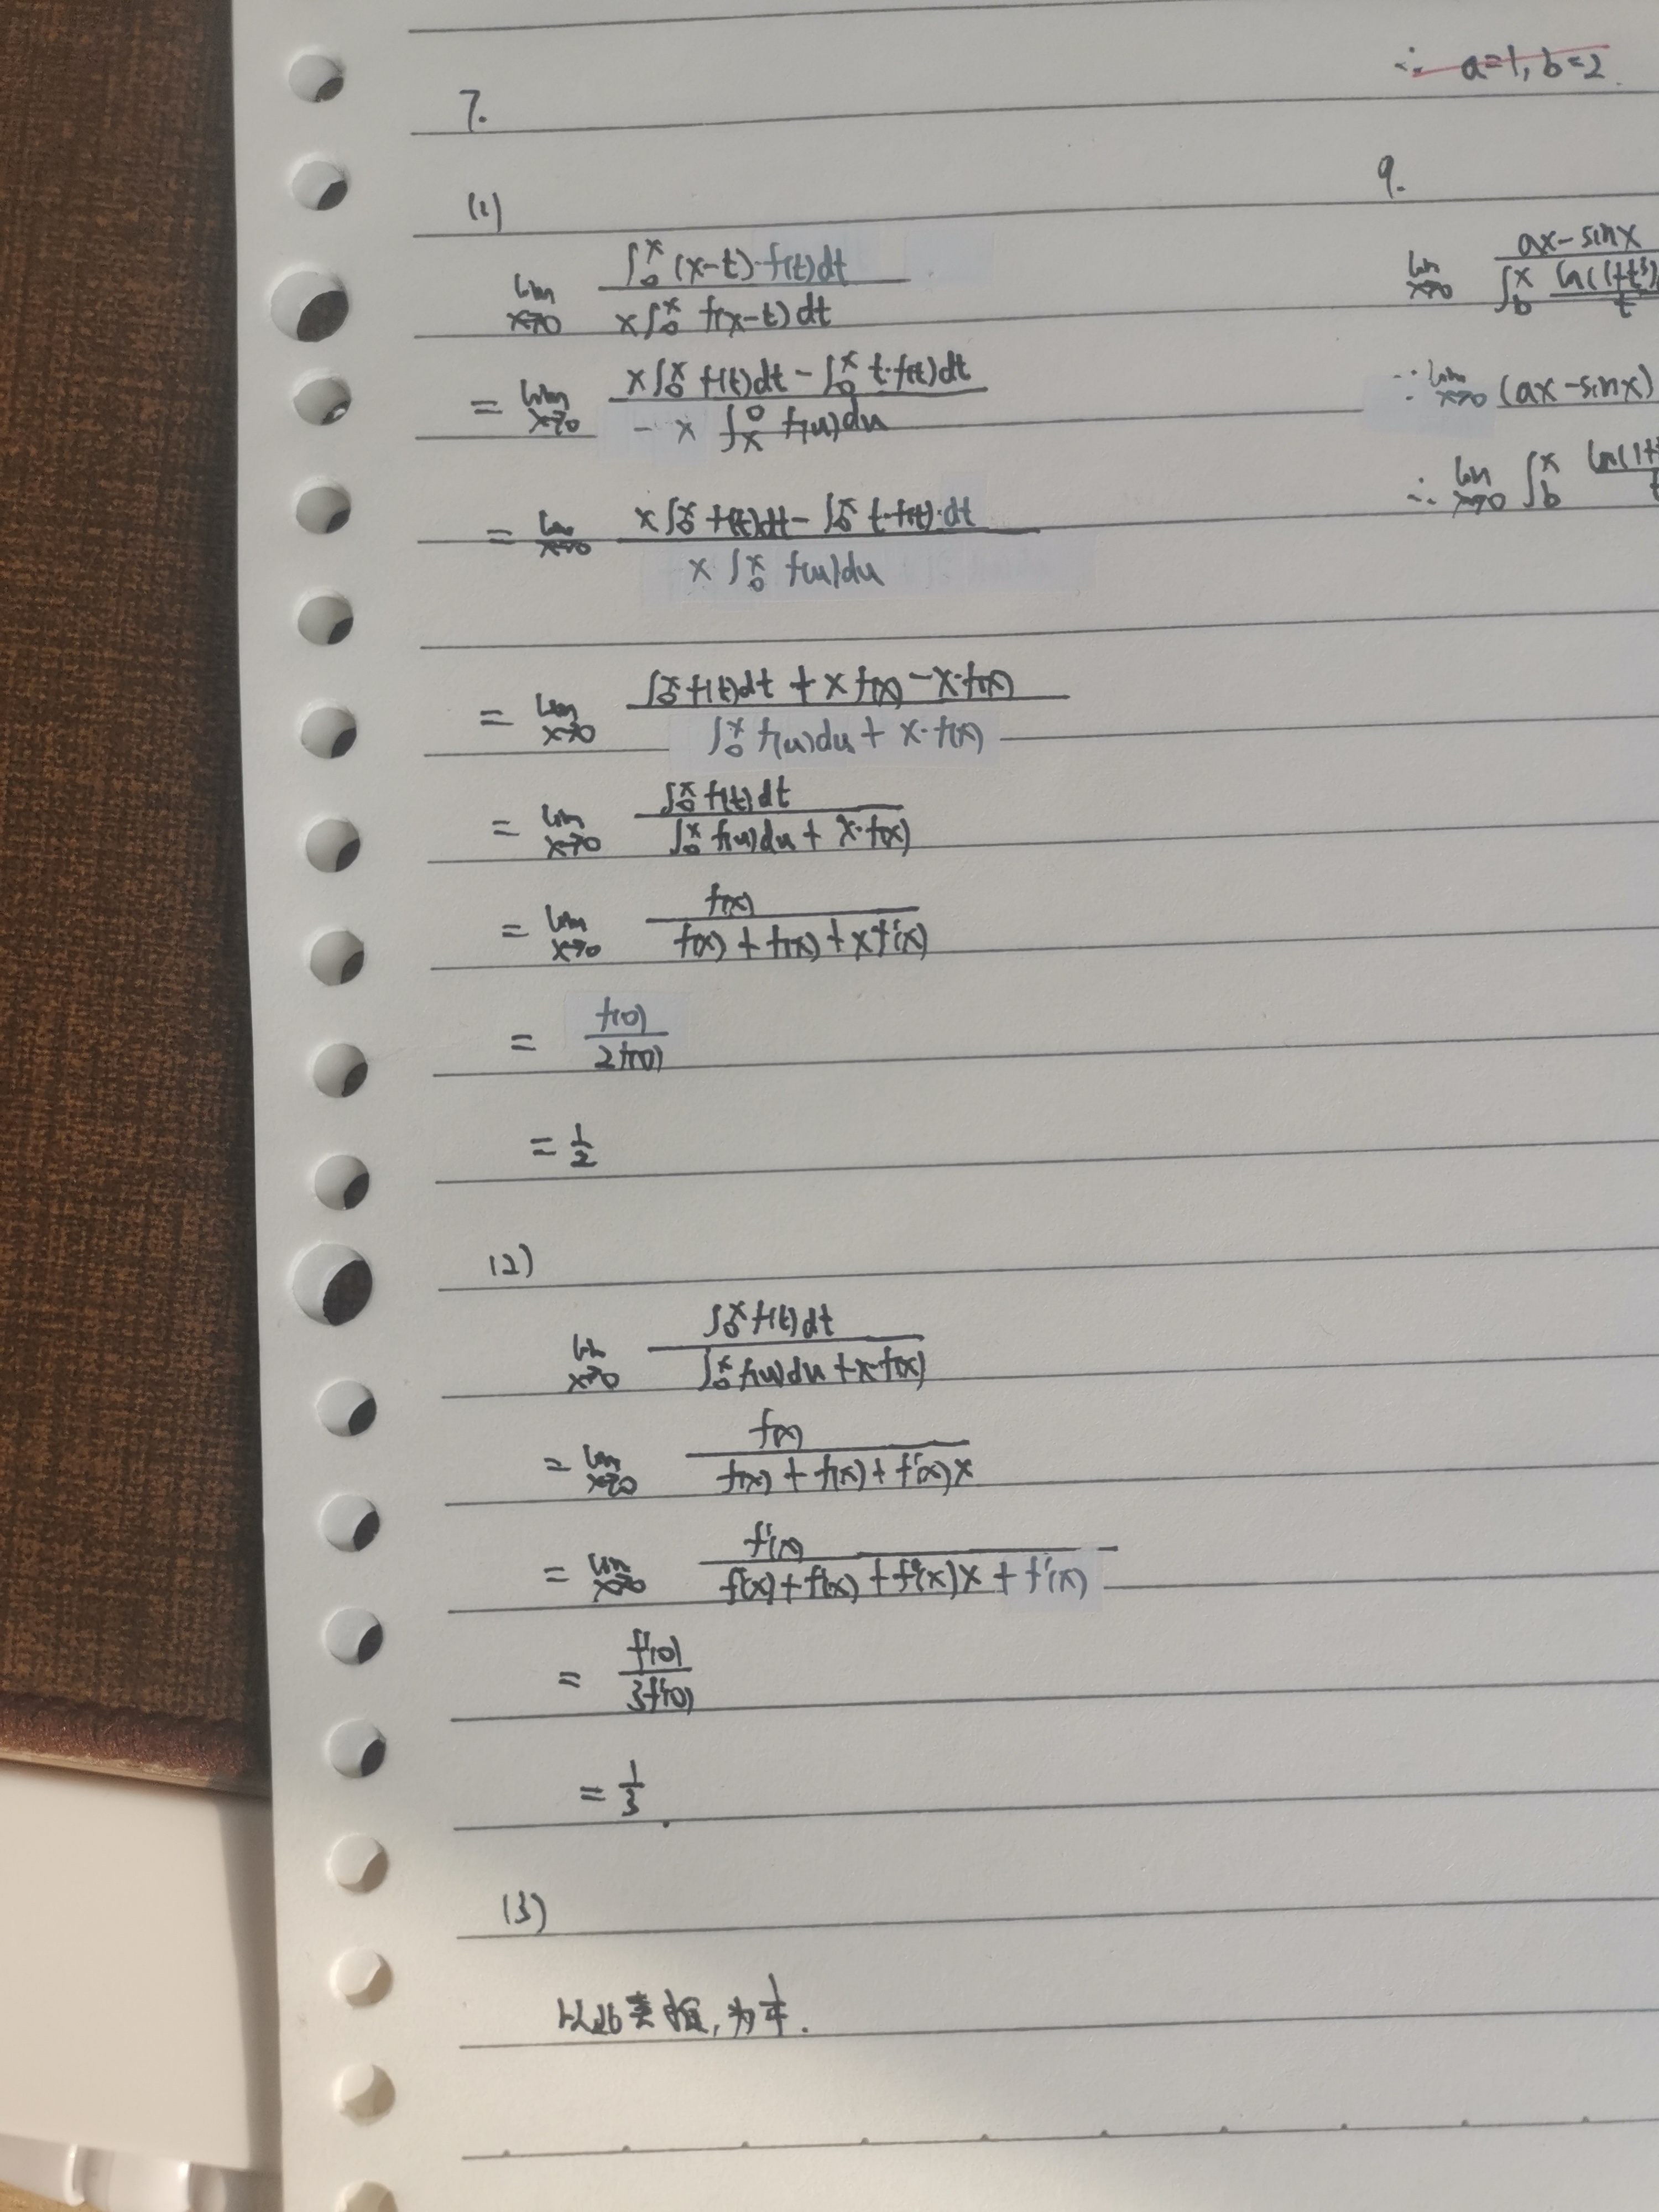 7.
(1)
lim x→0 ∫₀ˣ (x-t)·f(t)dt / x∫₀ˣ f(x-t)dt
= lim x→0 x∫₀ˣ f(t)dt - ∫₀ˣ t·f(t)dt / -x ∫ₓ⁰ f(u)du
= lim x→0 x∫₀ˣ f(t)dt - ∫₀ˣ t·f(t)·dt / x ∫₀ˣ f(u)du
= lim x→0 ∫₀ˣ f(t)dt + x f(x) - x·f(x) / ∫₀ˣ f(u)du + x·f(x)
= lim x→0 ∫₀ˣ f(t)dt / ∫₀ˣ f(u)du + x·f(x)
= lim x→0 f(x) / f(x) + f(x) + xf'(x)
= f(0) / 2f(0)
= 1/2
(2)
lim x→0 ∫₀ˣ f(t)dt / ∫₀ˣ f(u)du + x·f(x)
= lim x→0 f(x) / f(x) + f(x) + f'(x)x
= lim x→0 f'(x) / f'(x) + f'(x) + f''(x)x + f'(x)
= f'(0) / 3f'(0)
= 1/3
(3)
以此类推, 为1/4.
∴ a=1, b=2
9.
lim x→0 ax-sinx / ∫_b^x ln(1+t³) / t
∵ lim x→0 (ax-sinx)
∴ lim x→0 ∫_b^x ln(1+t